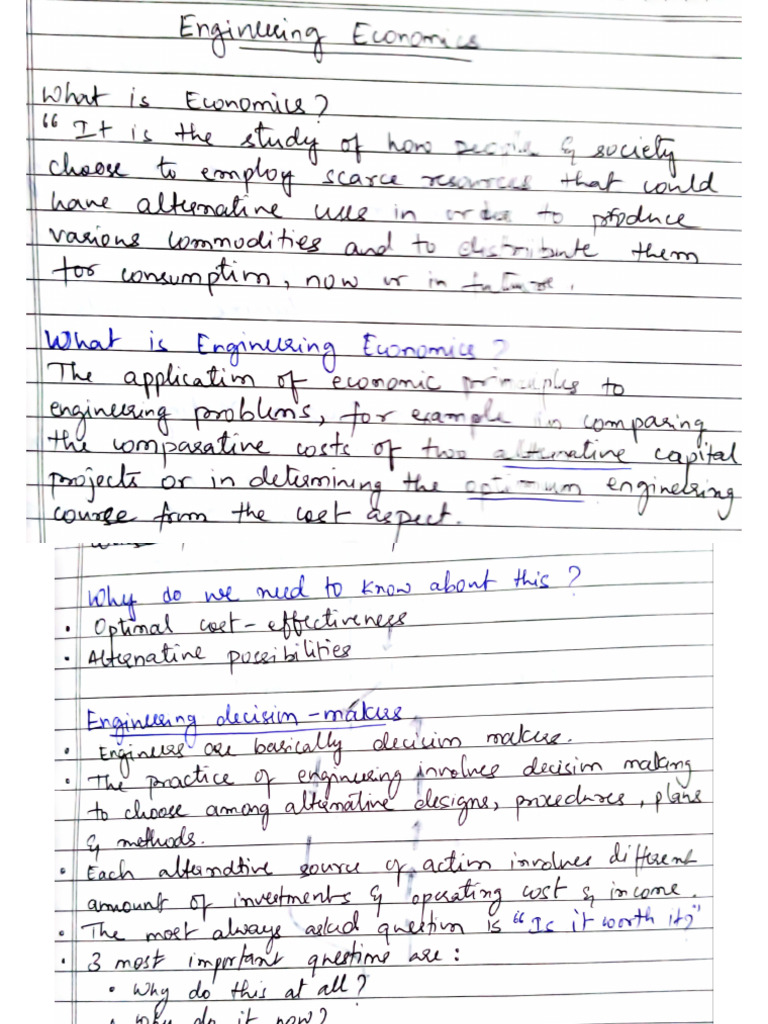 Engineering Economics
What is Economics?
"It is the study of how people & society
choose to employ scarce resources that could
have alternative uses in order to produce
various commodities and to distribute them
for consumption, now or in future.
What is Engineering Economics?
The application of economic principles to
engineering problems, for example in comparing
the comparative costs of two alternative capital
projects or in determining the optimum engineering
course from the cost aspect.
Why do we need to know about this?
• Optimal cost-effectiveness
• Alternative possibilities
Engineering decision-makers
• Engineers are basically decision makers.
• The practice of engineering involves decision making
to choose among alternative designs, procedures, plans
& methods.
• Each alternative source of action involves different
amount of investments & operating cost & income.
• The most always asked question is "Is it worth it?"
• 3 most important questions are:
• Why do this at all?
• Why do it now?